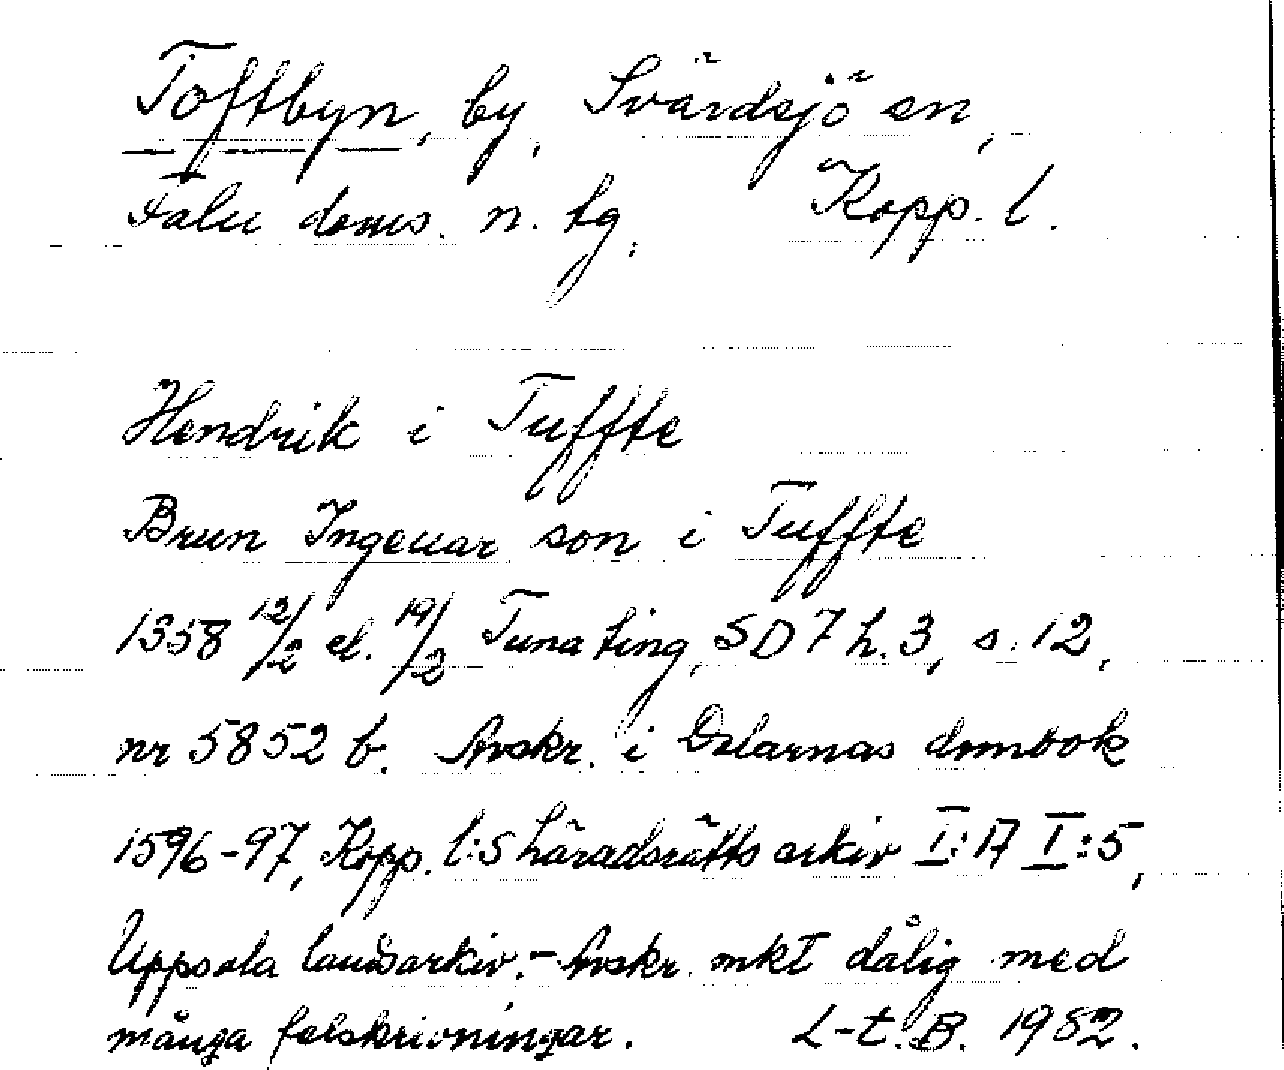 Toftbyn, by, Svärdsjö sn,
Falu doms. n. tg. Kopp. l.
Hendrik i Tuffte
Brun Ingeuar son i Tuffte
1358 12/2 el. 19/2 Tuna ting, SD 7 h. 3, s. 12,
nr 5852 b. Avskr. i Dalarnas dombok
1596-97, Kopp. l:s häradsrätts arkiv I:17 I:5,
Uppsala landsarkiv. - Avskr. mkt dålig med
många felskrivningar. L-t. B. 1982.